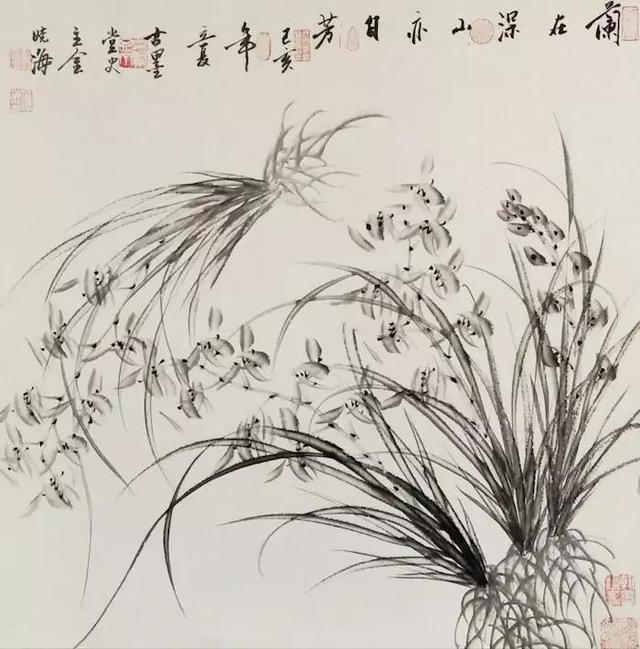 蘭在深山亦自芳
己亥
年
立夏
古墨
堂史
主金
晓海